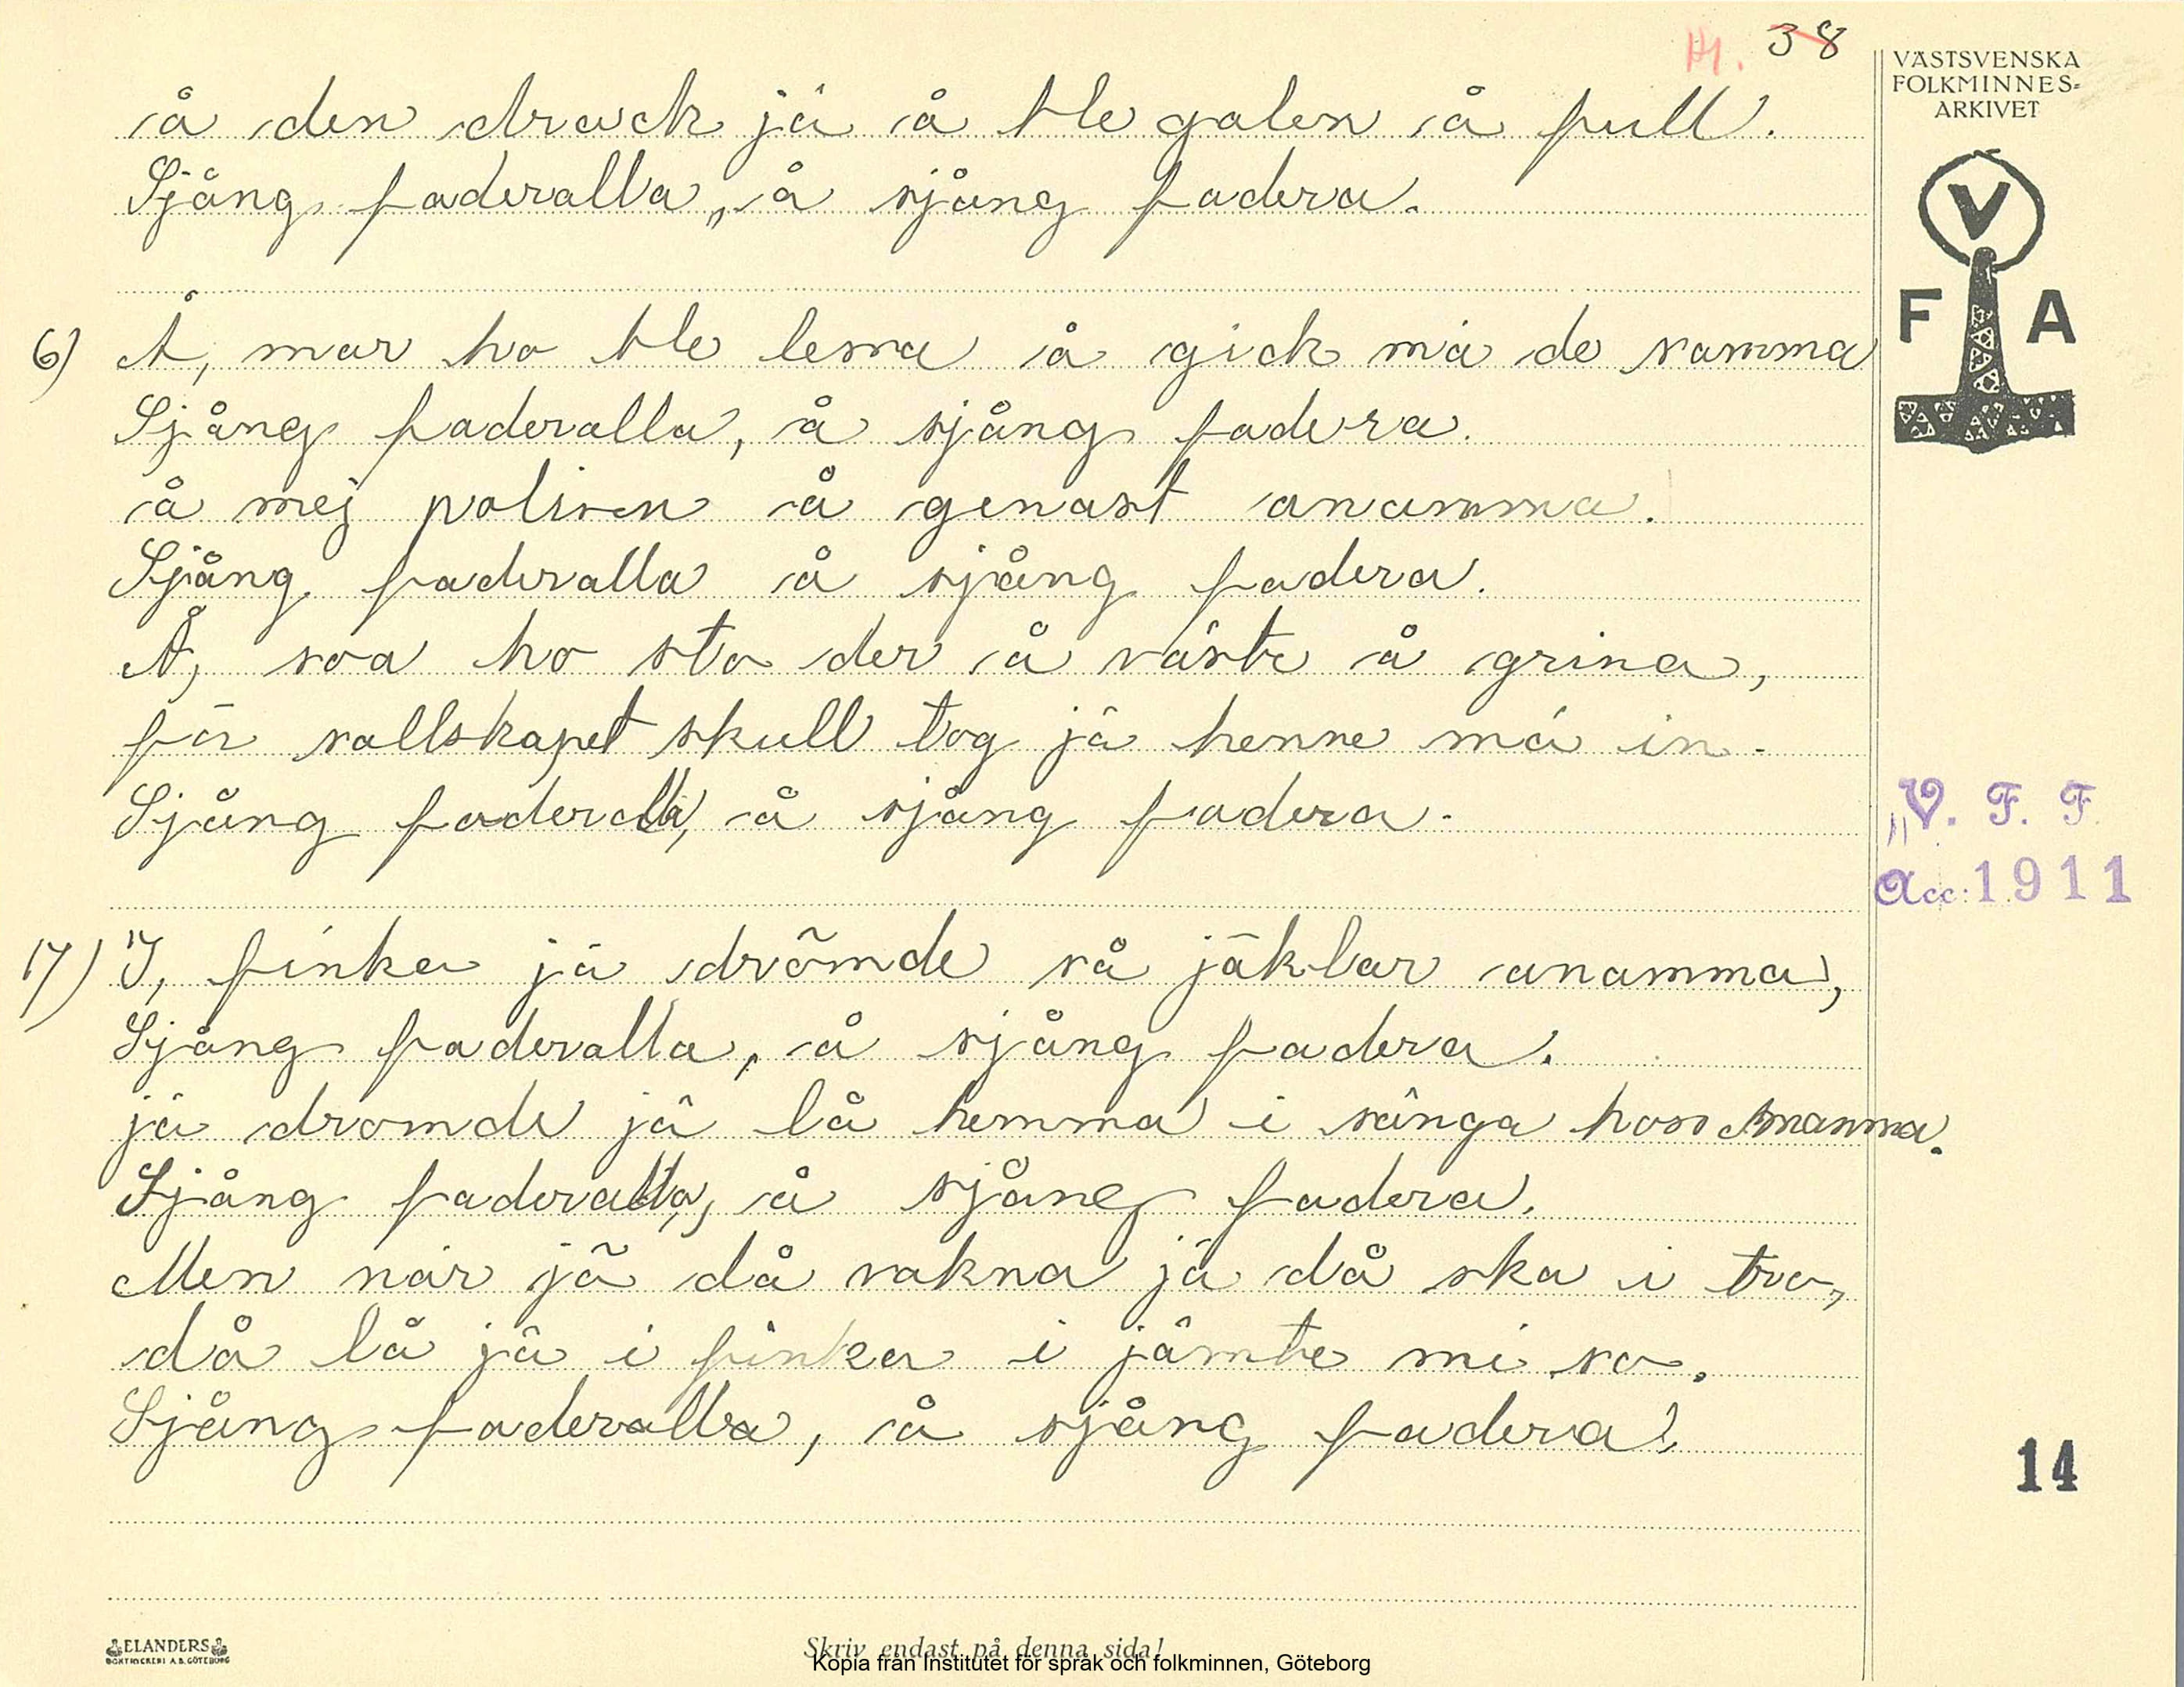 14. 38
VÄSTSVENSKA
FOLKMINNES-
ARKIVET
V
F A
å den drack jä å ble galen å full.
Sjång faderalla, å sjång fadera.
6) Å, mor ho ble lessa å gick mä de samma
Sjång faderalla, å sjång fadera.
å mej polisen å genast anamma.
Sjång faderalla å sjång fadera.
Å, soa ho sto der å väste å grina,
för sällskapet skull tog jä henne mä in.
Sjång faderalla, å sjång fadera.
V. F. F.
Acc: 1911
17) I, finka jä drömde så jäklar anamma,
Sjång faderalla, å sjång fadera.
jä dromde jä lå hemma i sänga hoss mamma.
Sjång faderalla, å sjång fadera.
Men när jä då vakna jä då ska i tro,
då lå jä i finka i jämte mi so.
Sjång faderalla, å sjång fadera!
14
ELANDERS
BOKTRYCKERI A.B. GÖTEBORG
Skriv endast på denna sida!
Kopia från Institutet för språk och folkminnen, Göteborg